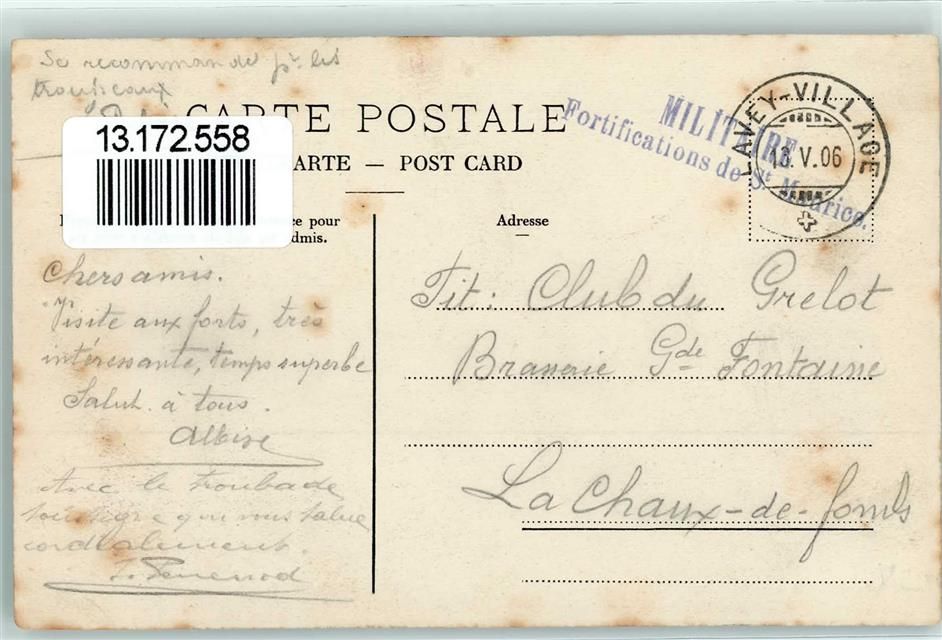 Se recommande pr les
trousseaux
CARTE POSTALE
13.172.558
CARTE — POST CARD
MILITAIRE
Fortifications de St Maurice.
LAVEY-VILLAGE
13.V.06
ce pour
dmis.
Adresse
Chers amis.
Visite aux forts, très
intéressante, temps superbe
Salut à tous.
Tit: Club du Grelot
Brasserie Gde Fontaine
La Chaux-de-fonds
Avec le troubade
soussigné qui vous salue
cordialement.